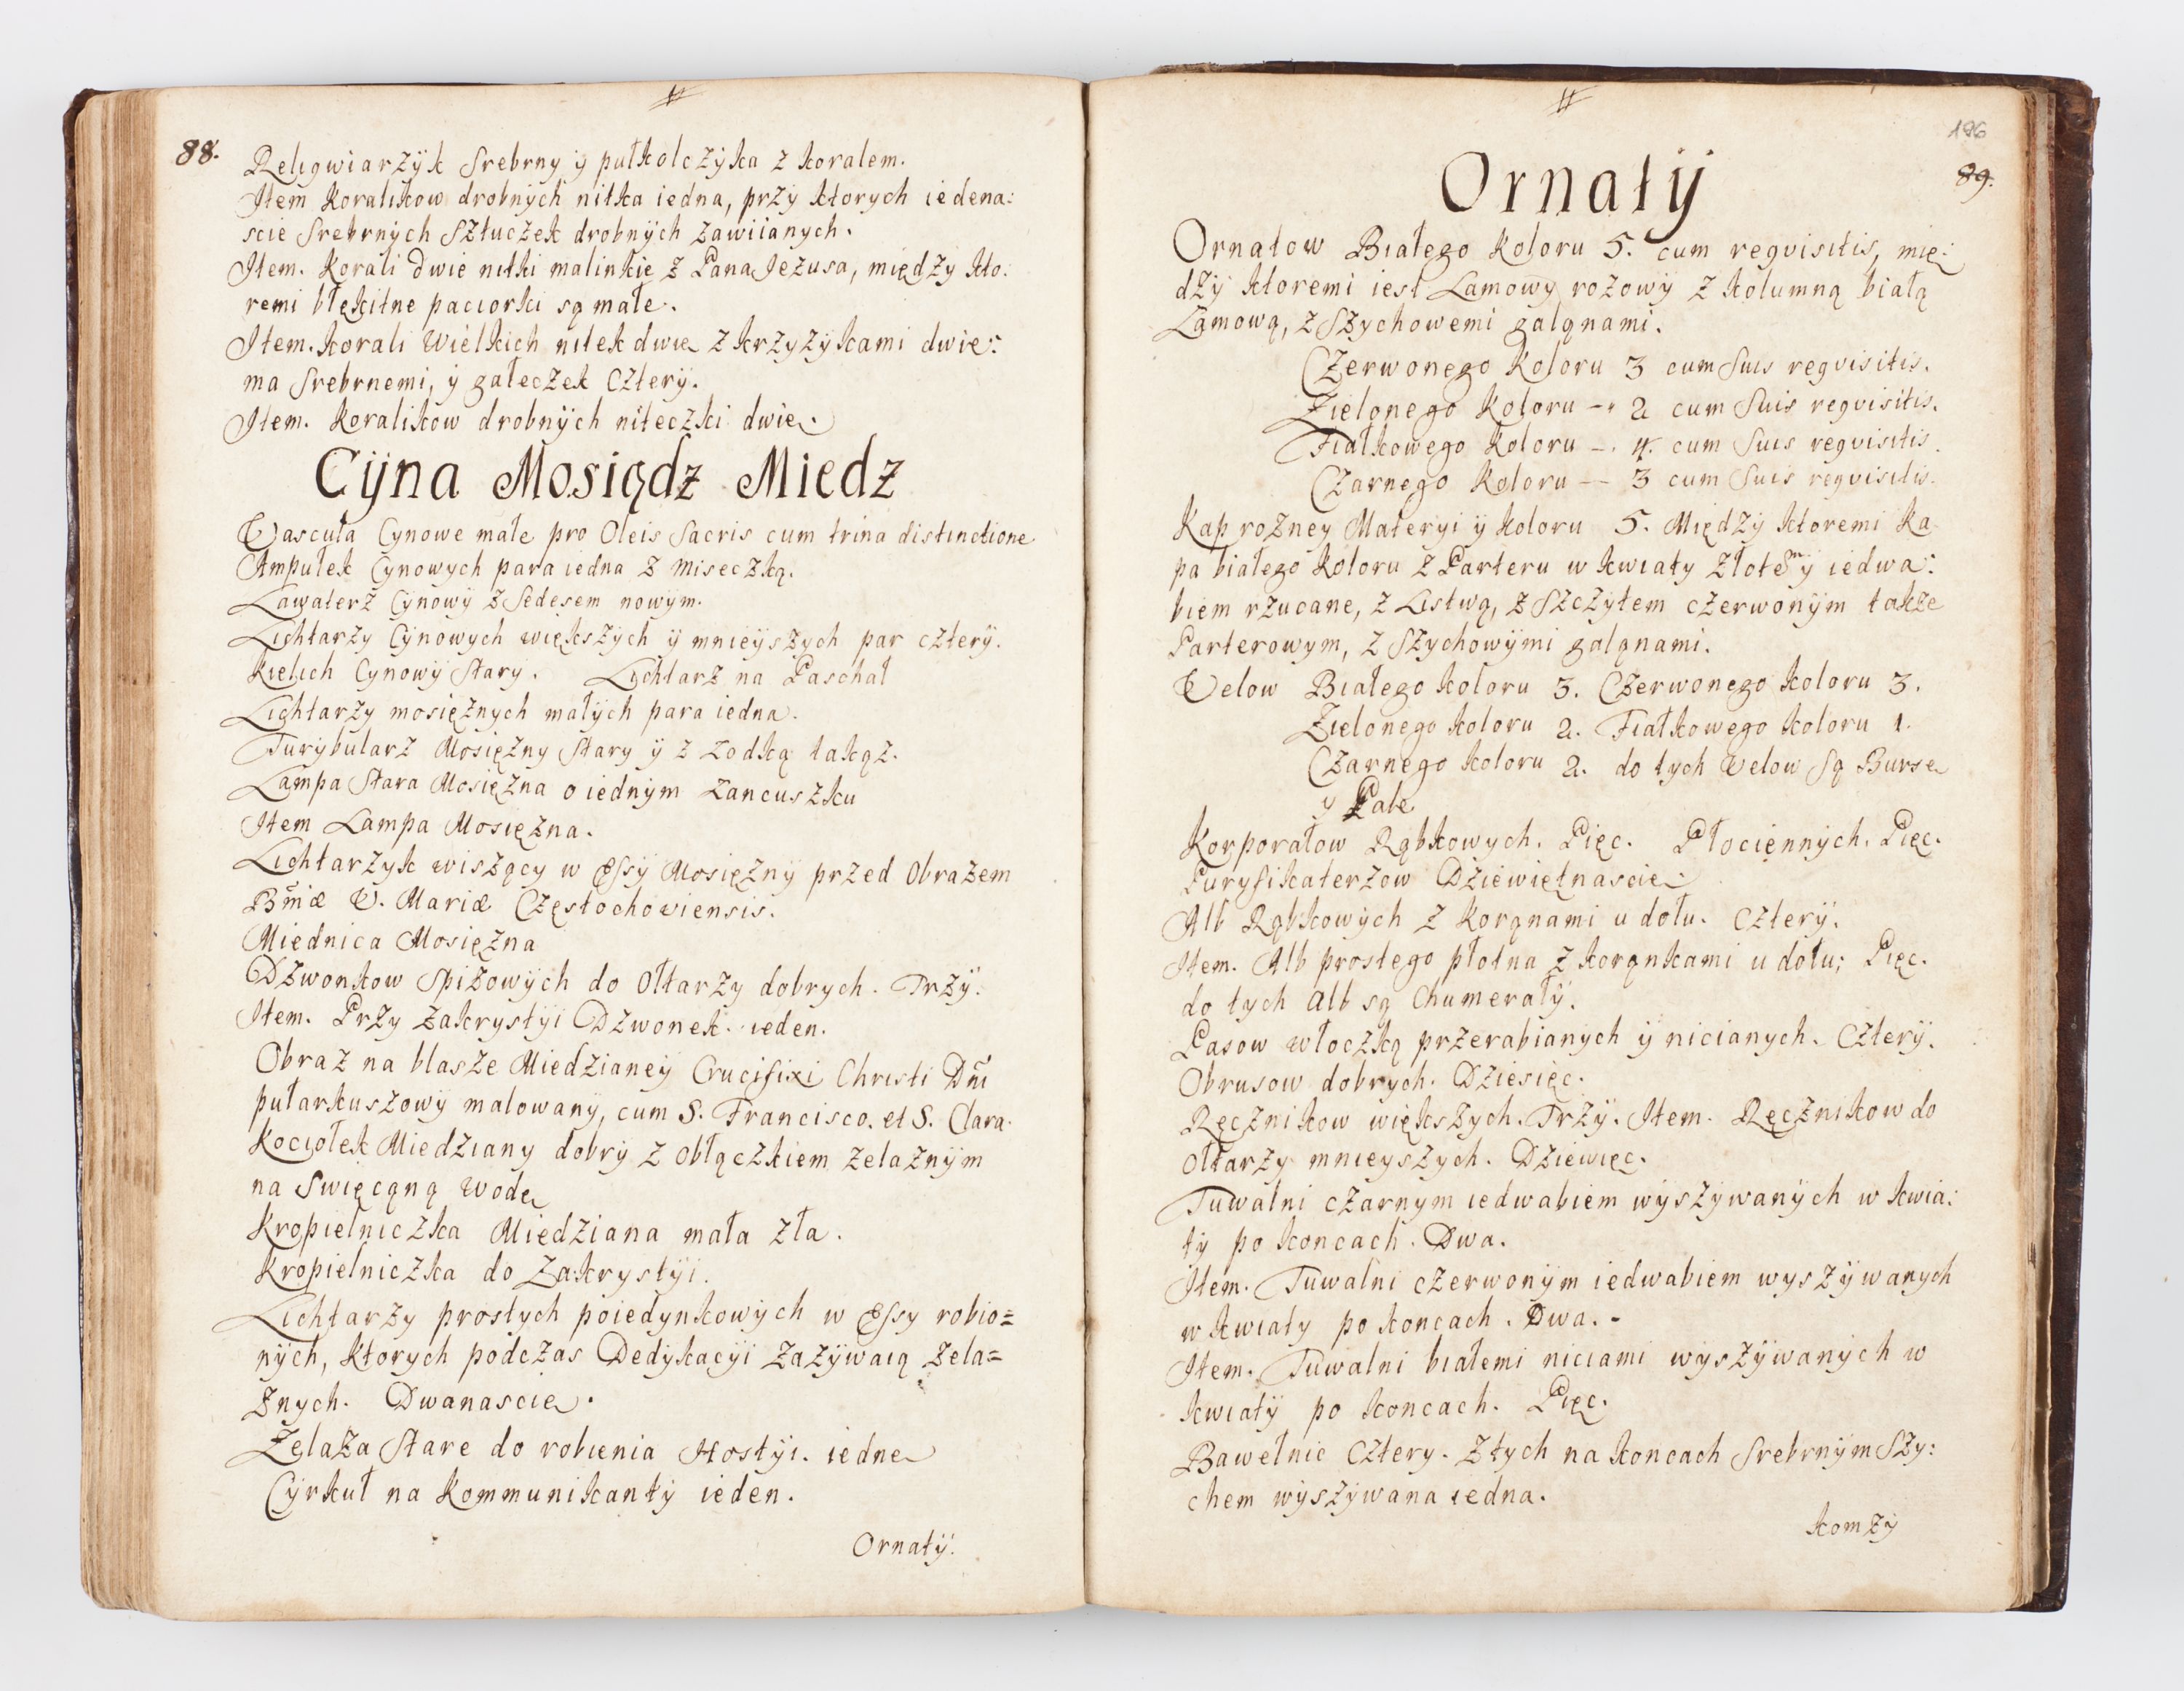 88.
Religwiarzÿk Srebrny ÿ pułkolczÿka z koralem.
Item Koralikow drobnÿch nitka iedna, przÿ ktorych iedena:
scie Srebrnÿch Sztuczek drobnÿch zawiianych.
Item. Korali dwie nitki malinkie z Pana Jezusa, międzÿ kto:
remi błękitne paciorki są małe.
Item. Korali Wielkich nitek dwie z krzyzÿkami dwie:
ma Srebrnemi, ÿ gałeczek czterÿ.
Item. Koralikow drobnÿch niteczki dwie.
Cÿna Mosiądz Miedz
Vascula Cynowe małe pro Oleis Sacris cum trina distinctione
Ampułek Cynowych para iedna z miseczką.
Lawaterz Cÿnowÿ z Sedesem nowÿm.
Lichtarzy Cÿnowych większÿch ÿ mnieÿszych par czterÿ.
Kielich Cynowÿ Starÿ. Lychtarz na Paschał
Lichtarzy mosiężnych małÿch para iedna.
Turÿbularz Mosiężny Stary ÿ z Lodką takąz.
Lampa Stara Mosiężna o iednÿm Lancuszku
Item Lampa Mosiężna.
Lichtarzyk wiszący w Essÿ Mosiężnÿ przed Obrazem
Bmæ V. Mariæ Częstochoviensis.
Miednica Mosiężna
Dzwonkow Spiżowÿch do Ołtarzy dobrych. Trzÿ.
Item. Przy Zakrystÿi Dzwonek. ieden.
Obraz na blasze Miedzianeÿ Crucifixi Christi Dni
pułarkuszowÿ malowanÿ, cum S. Francisco. et S. Clara.
Kociołek Miedziany dobrÿ z obłączkiem zelaznÿm
na Swięcąną Wodę
Kropielniczka Miedziana mała zła.
Kropielniczka do Zakrystÿi.
Lichtarzy prostych poiedynkowÿch w Essy robio=
nÿch, Ktorych podczas Dedÿkacÿi zazÿwaią żela=
znych. Dwanascie.
Zelaza Stare do robienia Hostÿi. iedne
Cÿrkuł na Kommunikantÿ ieden.
Ornatÿ.
186
89.
Ornatÿ
Ornatow Białego Koloru 5. cum reqvisitis, mię:
dzÿ ktoremi iest Lamowÿ rożowÿ z kolumną białą
Lamową, z Szychowemi galąnami.
Czerwonego Koloru 3 cum Suis reqvisitis.
Zielonego Koloru — 2 cum Suis reqvisitis.
Fiałkowego Koloru — 4. cum Suis reqvisitis.
Czarnego Koloru — 3 cum Suis reqvisitis.
Kap rozney Materyi ÿ koloru 5. Międzÿ ktoremi ka
pa białego koloru z Parteru w kwiaty złotem ÿ iedwa:
biem rzucane, z Listwą, z Szczÿtem czerwonÿm także
Parterowym, z Szychowÿmi galąnami.
Velow Białego koloru 3. Czerwonego koloru 3.
Zielonego koloru 2. Fiałkowego koloru 1.
Czarnego koloru 2. do tych Velow Są Burse
y Palle
Korporałow Rąbkowych. Pięc. Płociennÿch. Pięc.
Puryfikaterzow Dziewiętnascie.
Alb Rąbkowÿch z korąnami u dołu. czterÿ.
Item. Alb prostego płotna z korąnkami u dołu; Pięc.
do tych alb są Chumerałÿ.
Pasow włoczką przerabianych ÿ nicianych. Czterÿ.
Obrusow dobrych. Dziesięc.
Ręcznikow większych. Trzÿ. Item. Ręcznikow do
Ołtarzy mnieyszych. Dziewięc.
Tuwalni czarnym iedwabiem wÿszÿwanÿch w kwia:
tÿ po koncach. Dwa.
Item. Tuwalni czerwonÿm iedwabiem wyszÿwanych
w kwiaty po koncach. Dwa.
Item. Tuwalni białemi niciami wyszÿwanÿch w
kwiatÿ po koncach. Pięc.
Bawełnic cztery. z tych na koncach Srebrnÿm Szy:
chem wÿszÿwana iedna.
komzÿ